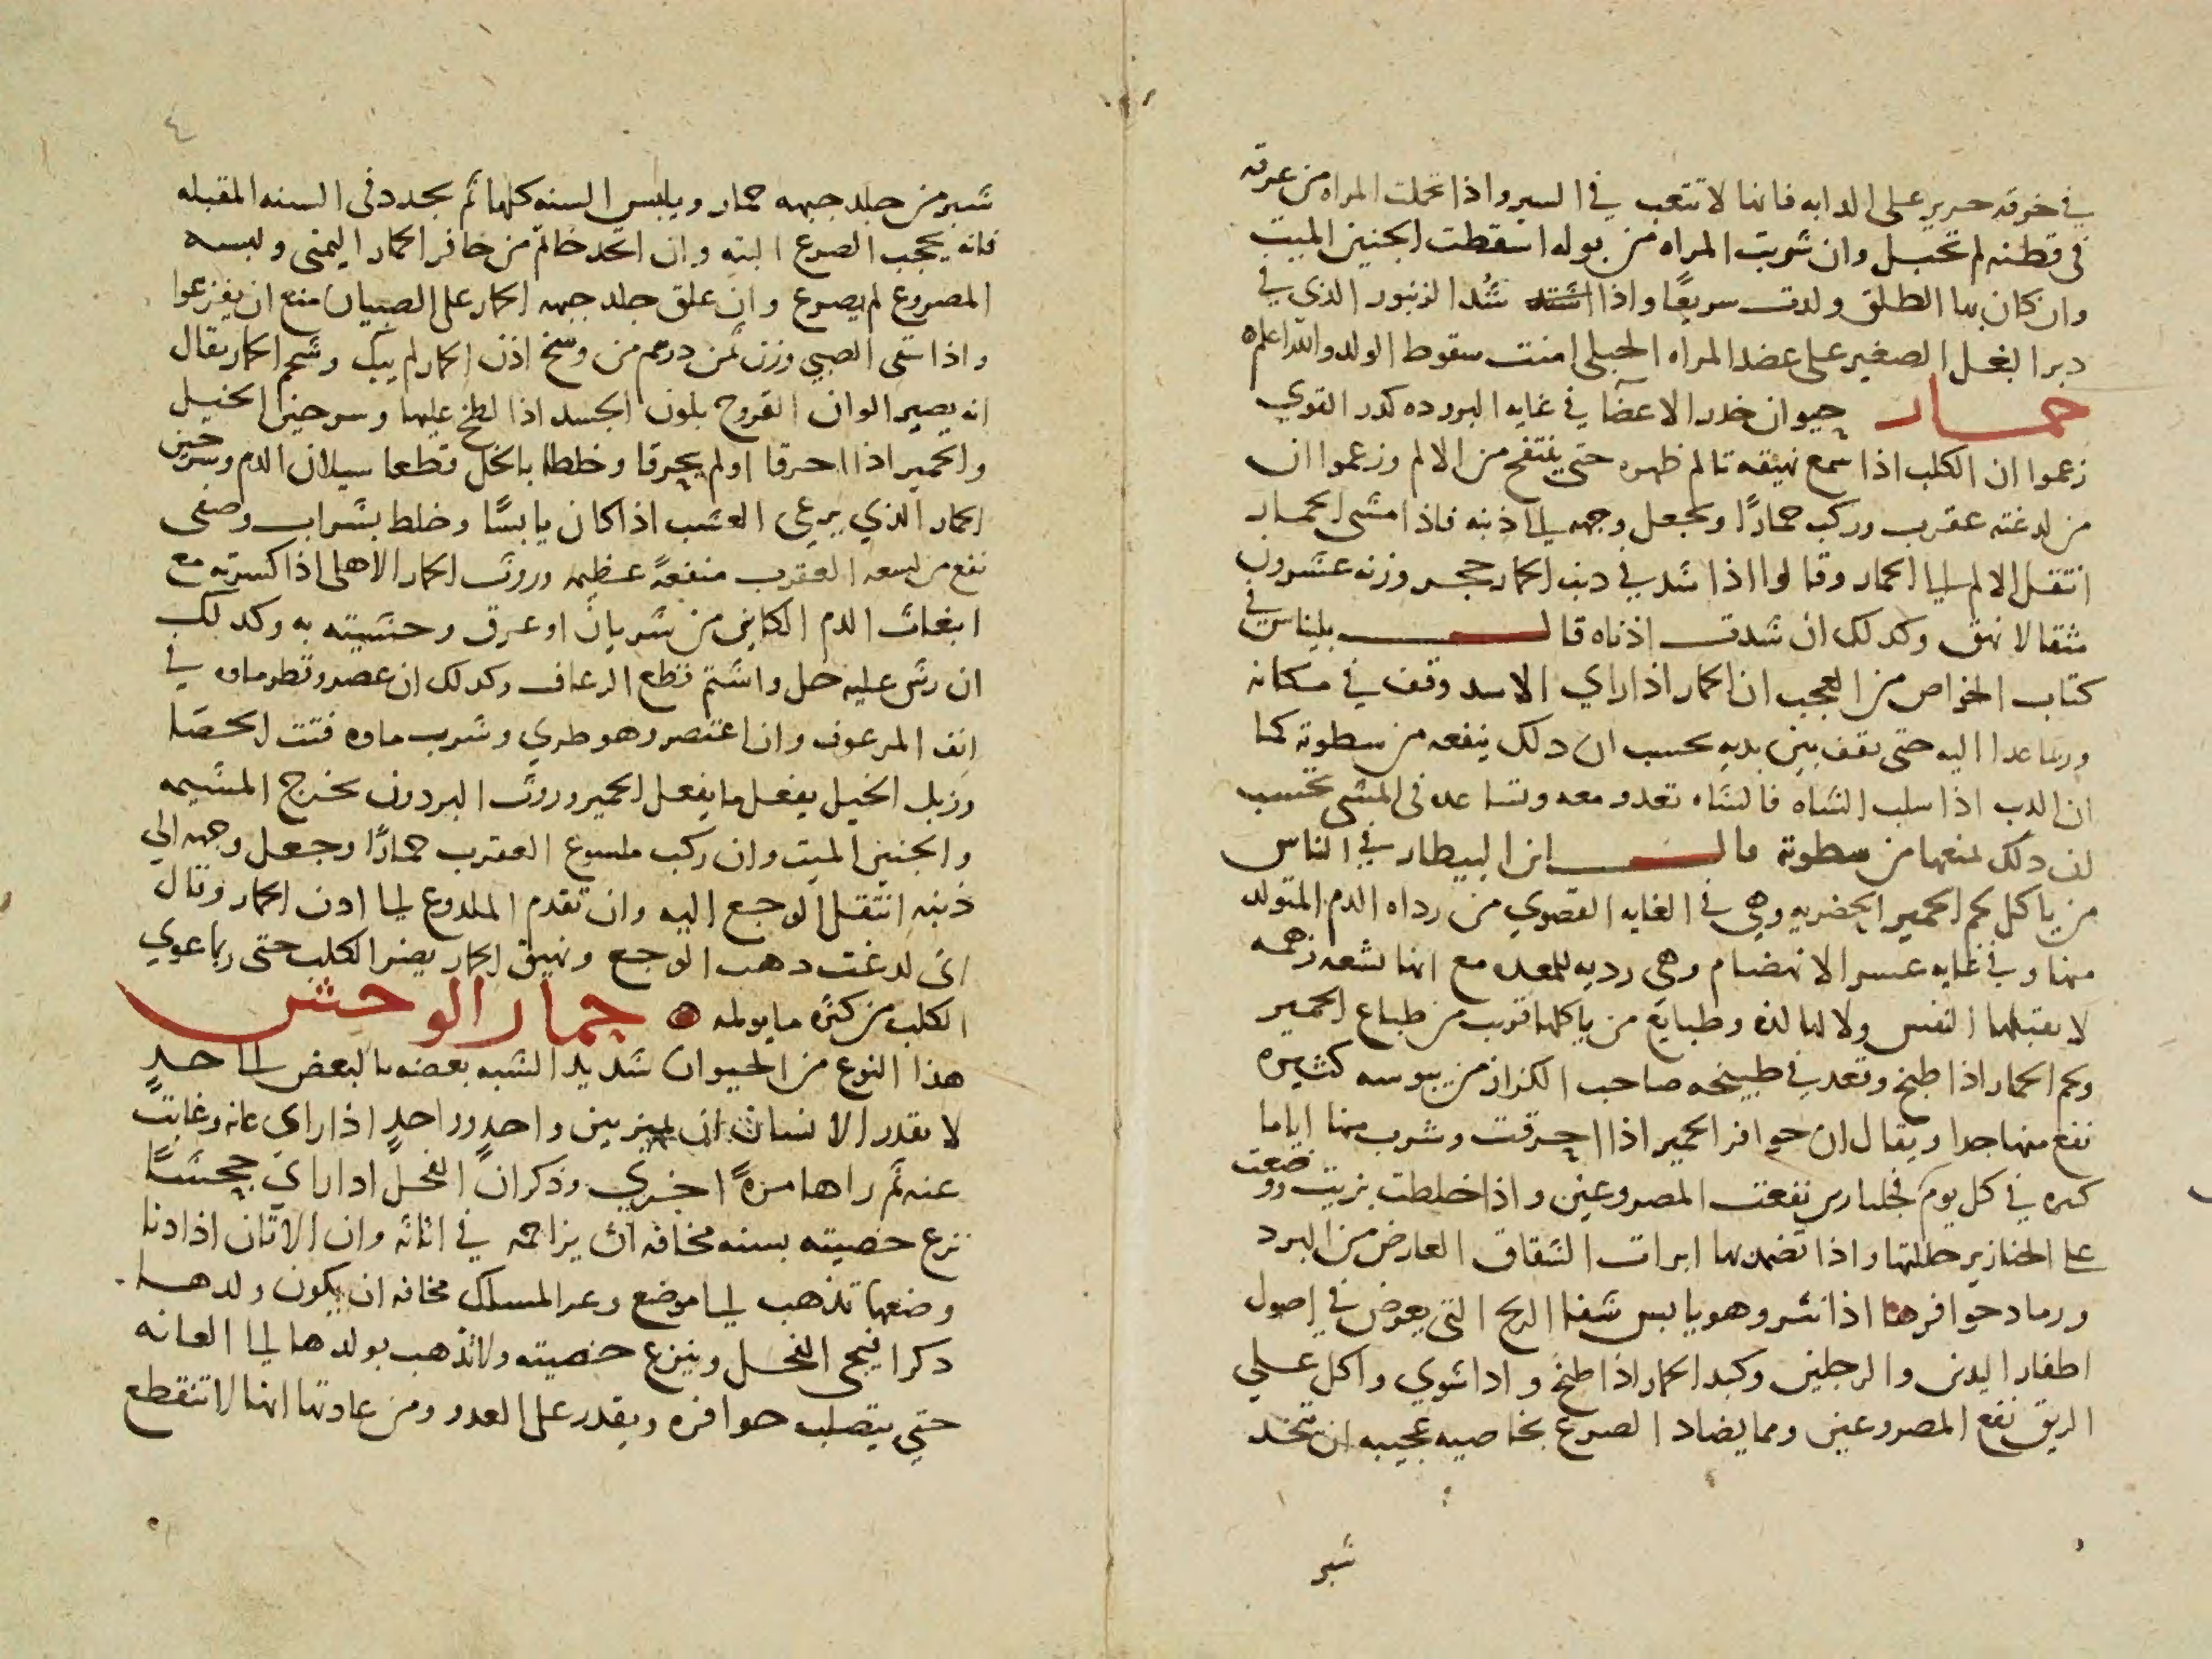 في خرقه حرير على الدابه فانها لا تتعب في السير واذا تحملت المراه من عرقه
في قطنه لم تحبل وان شربت المراه من بوله اسقطت الجنين الميت
وان كان بها الطلق ولدت سريعًا واذا شد الزنبور الذي في
دبر البغل الصغير على عضد المراه الحبلى امنت سقوط الولد والله اعلم ه
حمار حيوان خدر الاعضا في غايه البروده كدر القوي
زعموا ان الكلب اذا سمع نهيقه تالم ظهره حتى ينتفح من الالم وزعموا ان
من لدغته عقرب وركب حمارًا وجعل وجهه الى ذنبه فاذا مشى الحمار
انتقل الالم الى الحمار وقالوا اذا شد في ذنب الحمار حجر وزنه عشرون
مثقالا نهق وكدلك ان شدت اذناه قال بليناس في
كتاب الخواص من العجب ان الحمار اذا راي الاسد وقف في مكانه
وربما عدا اليه حتى يقف بين يديه يحسب ان دلك ينفعه من سطوته كما
ان الدب اذا سلب الشاه فالشاه تعدو معه وتساعده في المشى تحتسب
ان دلك يمنعها من سطوته قال ابن البيطار في الناس
من ياكل لحم الحمير الحضريه وهي في الغايه القصوي من رداه الدم المتولد
منها وفي غايه عسر الانهضام وهي رديه للمعده مع انها بشعه زهمه
لا تقبلها النفس ولا لها لذه وطبايع من ياكلها قريب من طباع الحمير
ولحم الحمار اذا طبخ وقعد في طبيخه صاحب الكزاز من يبوسه كثيره
نفع منها جدا ويقال ان حوافر الحمير اذا احرقت وشرب منها اياما
كثيره في كل يوم فجلنارين نفعت المصروعين واذا خلطت بزيت ووضعت
على الخنازير حللتها واذا تضمد بها ابرات الشقاق العارض من البرد
ورماد حوافرها اذا نثر وهو يابس شفا الريح التي يعرض في اصول
اظفار اليدين والرجلين وكبد الحمار اذا طبخ واذا شوي واكل علي
الريق نفع المصروعين ومما يضاد الصرع بخاصيه عجيبه ان يتخذ
شبر
٤
شبر من جلد جبهه حمار ويلبس السنه كلها ثم يجدد في السنه المقبله
فانه يحجب الصرع البته وان اتخد خاتم من حافر الحمار اليمنى ولبسه
المصروع لم يصرع وان علق جلد جبهه الحمار على الصبيان منع ان يفزعوا
واذا سقي الصبي وزن ثمن درهم من وسخ اذن الحمار لم يبك وشحم الحمار يقال
انه يصير الوان القروح بلون الجسد اذا لطخ عليها وسرجين الخيل
والحمير اذا احرقا او لم يحرقا وخلطا بالخل قطعا سيلان الدم وسرجين
الحمار الذي يرعى العشب اذا كان يابسًا وخلط بشراب وصفى
نفع من لسعه العقرب منفعةً عظيمه وروث الحمار الاهلى اذا كسرته مع
انبعاث الدم الكاين من شريان او عرق وحشيته به وكدلك
ان رش عليه خل واشتم قطع الرعاف وكدلك ان عصر وقطر ماوه في
انف المرعوف وان اعتصر وهو طري وشرب ماوه فتت الحصا
وزبل الخيل يفعل ما يفعل الحمير وروث البردون يخرج المشيمه
والجنين الميت وان ركب ملسوع العقرب حمارًا وجعل وجهه الي
ذنبه انتقل الوجع اليه وان تقدم الملدوغ الى ادن الحمار وقال
انى لدغت دهب الوجع ونهيق الحمار يضر الكلب حتى ربما عوي
الكلب من كثره ما يولمه حمار الوحش
هذا النوع من الحيوان شديد الشبه بعضه بالبعض الى حدٍ
لا يقدر الانسان ان يميز بين واحدٍ وواحدٍ اذا راي عانه وغابت
عنه ثم راها مرةً اخري وذكر ان الفحل ادا راي جحشًا
نزع خصيته بسنه مخافه ان يزاحمه في اتانه وان الاتان اذا دنا
وضعها تذهب الى موضع وعر المسلك مخافه ان يكون ولدها
دكرا فيجى الفحل وينزع خصيته ولا تذهب بولدها الى العانه
حتي يتصلب حوافره ويقدر على العدو ومن عادتها انها لا تنقطع